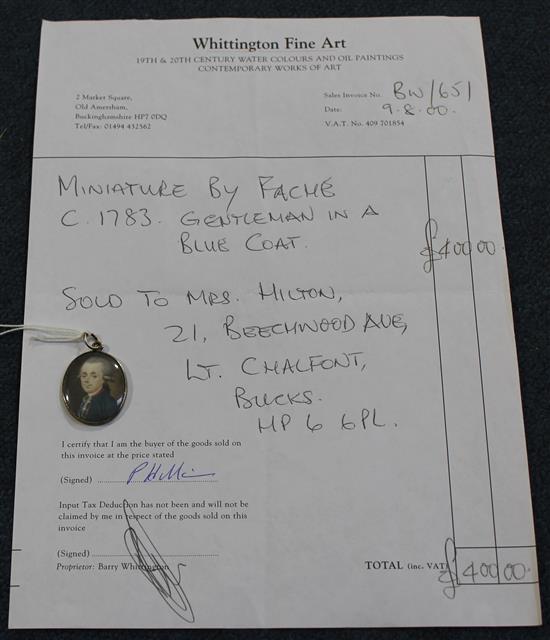 Whittington Fine Art
19TH & 20TH CENTURY WATER COLOURS AND OIL PAINTINGS
CONTEMPORARY WORKS OF ART
2 Market Square,
Old Amersham,
Buckinghamshire HP7 0DQ
Tel/Fax: 01494 432562
Sales Invoice No. BW/651
Date: 9.8.00.
V.A.T. No. 409 701854
MINIATURE BY FACHÉ
C.1783. GENTLEMAN IN A
BLUE COAT.
£400 00.
SOLD TO MRS. HILTON,
21, BEECHWOOD AVE,
LT. CHALFONT,
BUCKS.
HP6 6PL.
I certify that I am the buyer of the goods sold on
this invoice at the price stated
(Signed)
Input Tax Deduction has not been and will not be
claimed by me in respect of the goods sold on this
invoice
(Signed)
Proprietor: Barry Whittington
TOTAL (inc. VAT) £400 00.